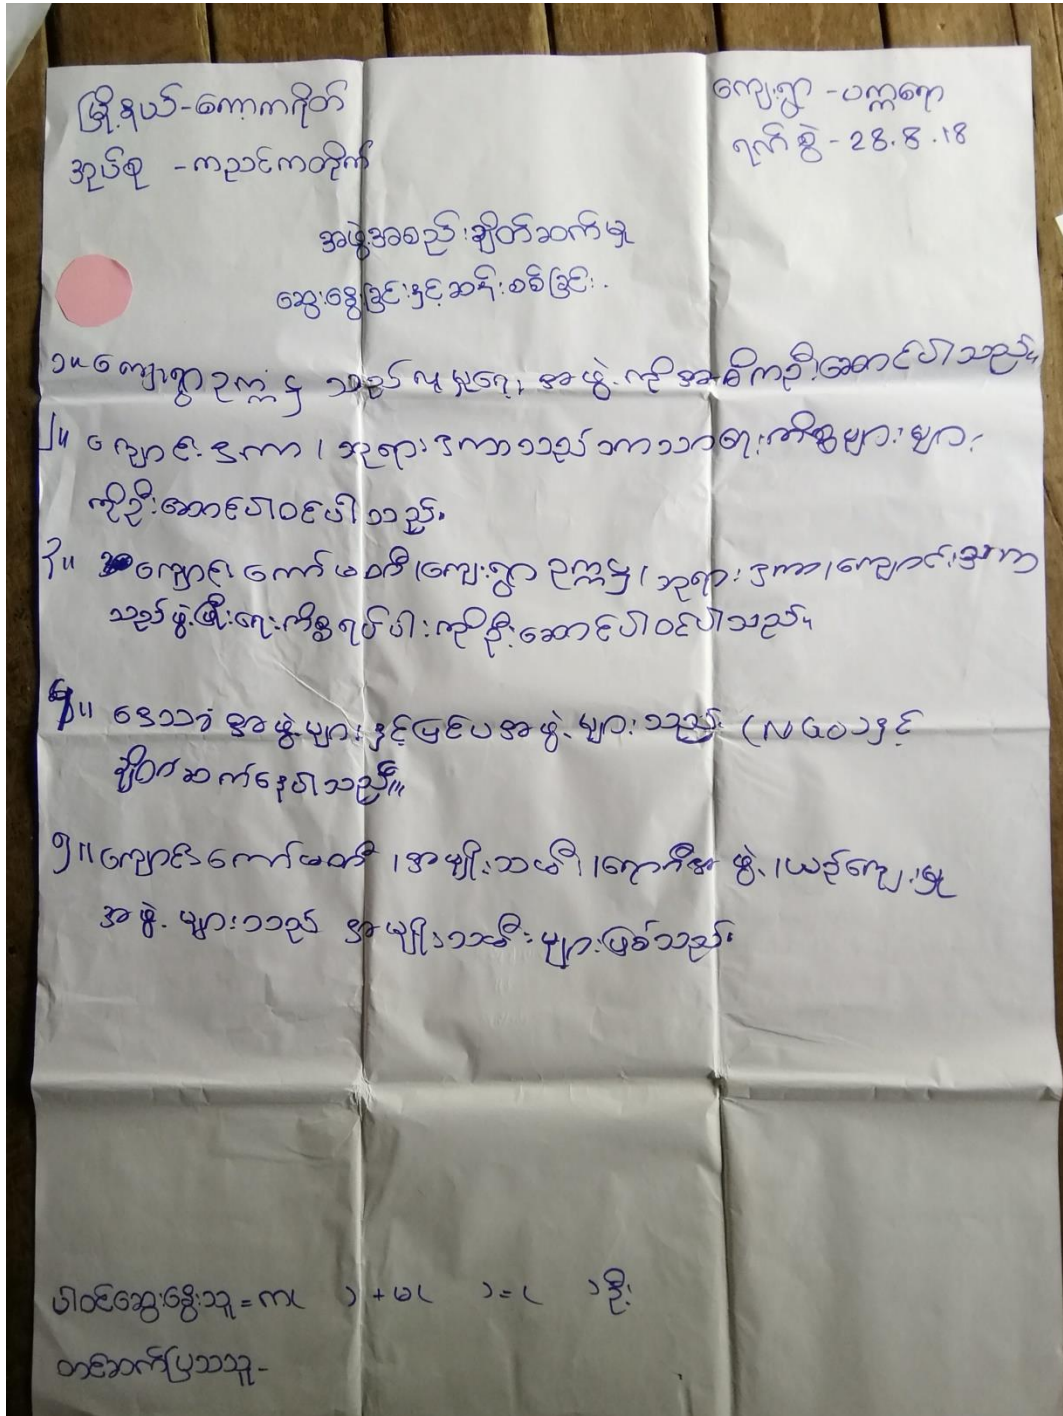 မြို့နယ်-ကော့ကရိတ်
ကျေးရွာ -ပက္ကရော
အုပ်စု -ကညင်ကတိုက်
ရက်စွဲ - 28.8.18
အဖွဲ့အစည်းချိတ်ဆက်မှု
ဆွေးနွေးခြင်းနှင့်ဆန်းစစ်ခြင်း.
၁။ ကျေးရွာဥက္ကဋ္ဌ သည် လူမှုရေး အဖွဲ့ကို အဓိကဦးဆောင်ပါသည်။
၂။ ကျောင်းဒကာ၊ ဘုရားဒကာသည် ဘာသာရေးကိစ္စများများ
ကိုဦးဆောင်ပါဝင်ပါသည်။
၃။ ကျောင်းကော်မတီ၊ကျေးရွာ ဥက္ကဋ္ဌ၊ ဘုရားဒကာ၊ကျောင်းအကာ
သည်ဖွံ့ဖြိုးရေးကိစ္စရပ်ပါးကိုဦးဆောင်ပါဝင်ပါသည်။
၄။ ဒေသခံအဖွဲ့များနှင့်ပြင်ပအဖွဲ့များသည် (NGO)နှင့်
ချိတ်ဆက်နေပါသည်။
၅။ကျောင်းကော်မတီ ၊အမျိုးသမီး၊ရောဂီအဖွဲ့၊ယဉ်ကျေးမှု
အဖွဲ့များသည် အမျိုးသမီးများဖြစ်သည်။
ပါဝင်ဆွေးနွေးသူ = က( ) + မ( ) = ( )ဦး
တင်ဆက်ပြသသူ -